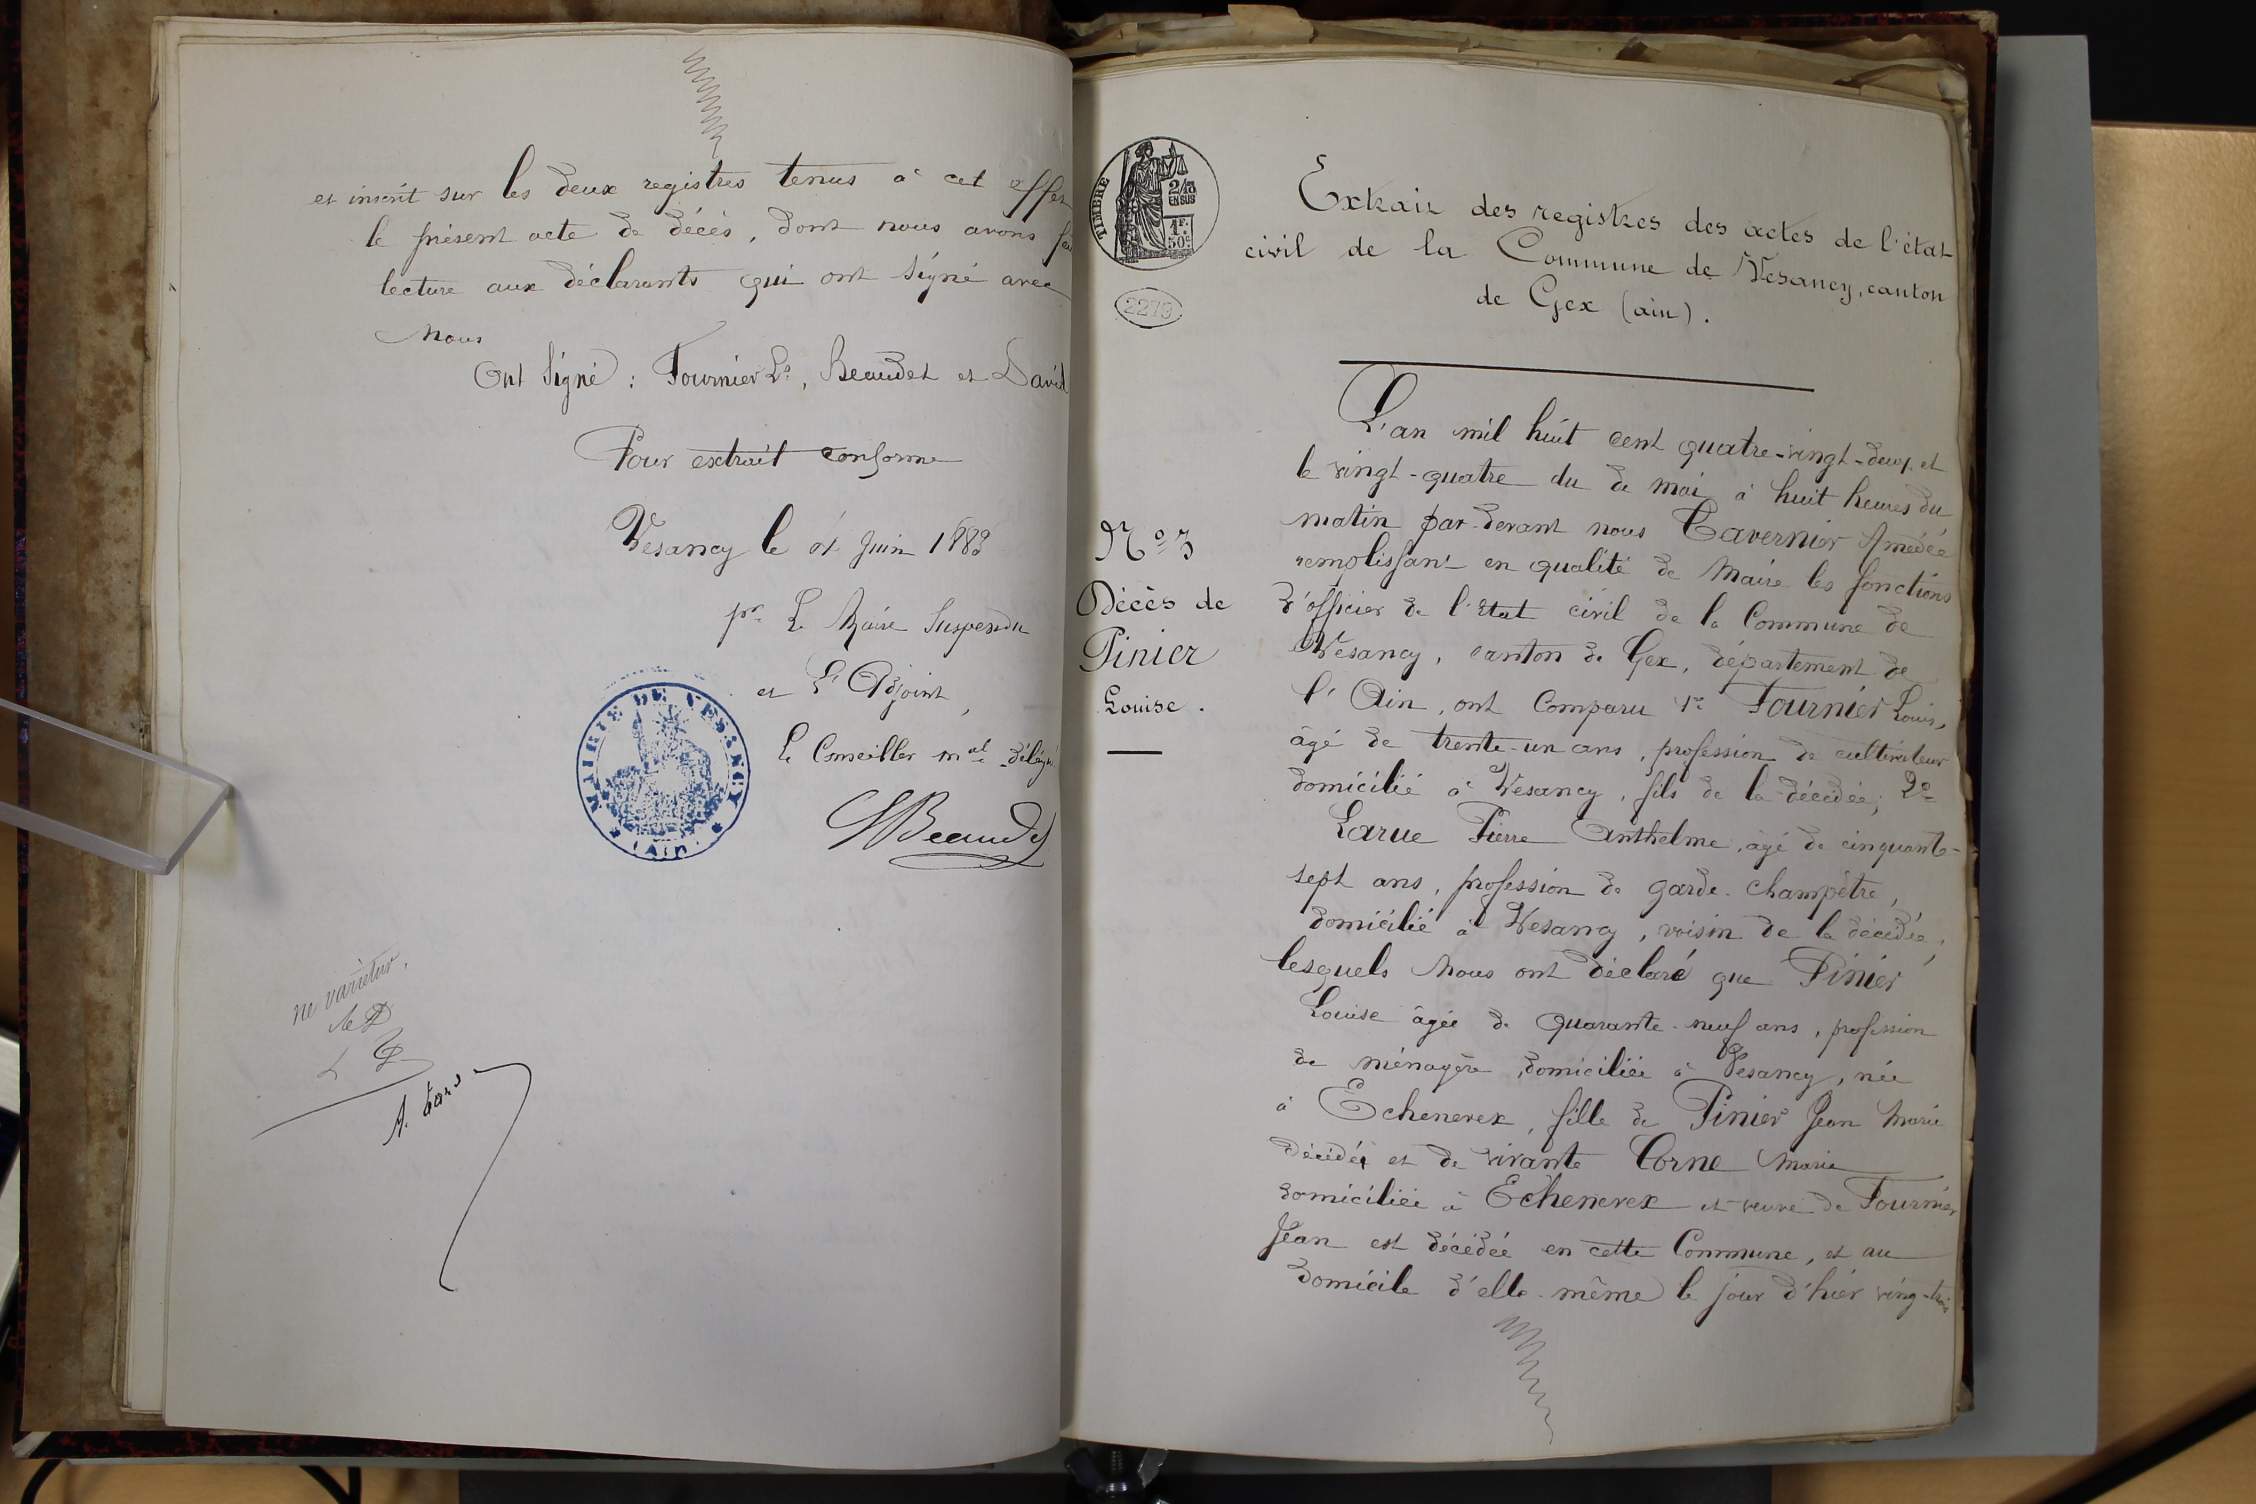 et inscrit sur les deux registres tenus à cet effet
le présent acte de décès, dont nous avons
lecture aux déclarants qui ont signé avec
Nous
Ont Signé : Fournier Ls, Beaudet et David
Pour extrait conforme
Vesancy le 01 Juin 1883
pr. Le Maire Suspendu
et L'Adjoint,
Le Conseiller mal délégué
Beaudet
MAIRIE DE VESANCY
(AIN)
ne varietur.
TIMBRE
2/10
EN SUS
1F.
50c
2279
Extrait des registres des actes de l'état
civil de la Commune de Vesancy, canton
de Gex (ain).
No 3
Décès de
Pinier
Louise.
L'an mil huit cent quatre-vingt-deux et
le vingt-quatre du de mai à huit heures du
matin par-devant nous Tavernier Amédée
remplissant en qualité de Maire les fonctions
d'officier de l'Etat civil de la Commune de
Vesancy, canton de Gex, département de
l'Ain, ont Comparu 1° Fournier Louis,
âgé de trente-un ans, profession de cultivateur
domicilié à Vesancy, fils de la décédée; 2°
Larue Pierre Anthelme, âgé de cinquante-
sept ans, profession de garde-champêtre,
domicilié à Vesancy, voisin de la décédée,
lesquels Nous ont déclaré que Pinier
Louise âgée de Quarante-neuf ans, profession
de ménagère, domiciliée à Vesancy, née
à Echenevex, fille de Pinier Jean Marie
décédé et de vivante Corne Marie
domiciliée à Echenevex et veuve de Fournier
Jean est décédée en cette Commune, et au
domicile d'elle-même le jour d'hier ving-trois